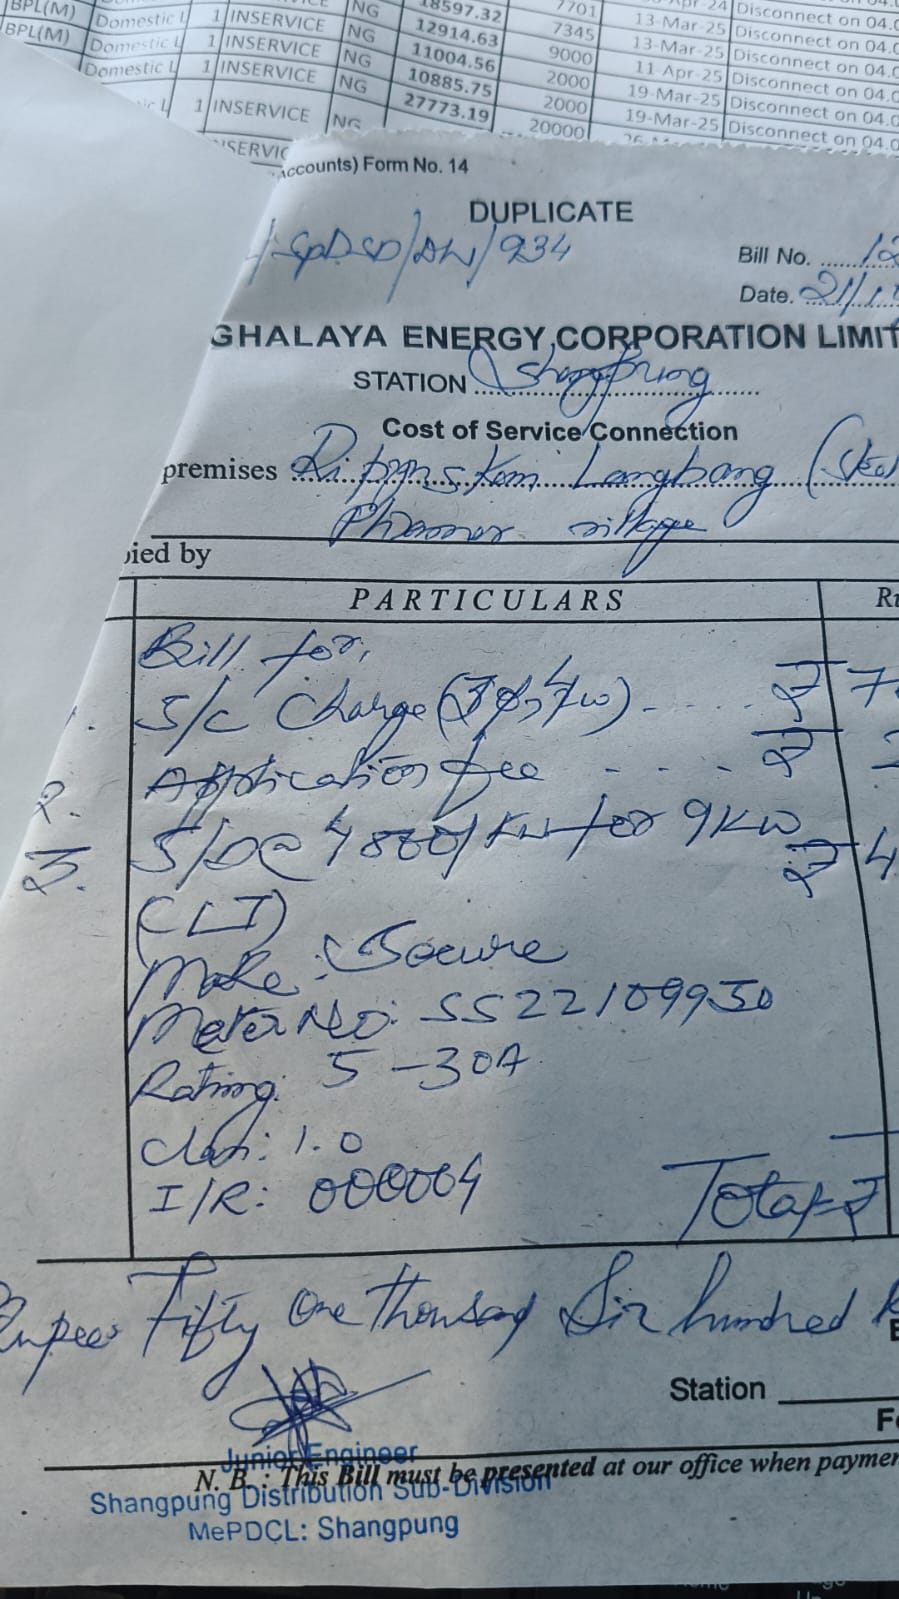 BPL(M) Domestic L 1 INSERVICE NG 18597.32 7701 13-Mar-25 Disconnect on 04.0
BPL(M) Domestic L 1 INSERVICE NG 12914.63 7345 13-Mar-25 Disconnect on 04.0
Domestic L 1 INSERVICE NG 11004.56 9000 11-Apr-25 Disconnect on 04.0
1 INSERVICE NG 10885.75 2000 19-Mar-25 Disconnect on 04.0
27773.19 2000 19-Mar-25 Disconnect on 04.0
20000
Accounts) Form No. 14
DUPLICATE
/934
Bill No. 12
Date. 21/1
GHALAYA ENERGY CORPORATION LIMIT
STATION Shangpung
Cost of Service Connection
premises Langbang
village
pied by
PARTICULARS Ru
Bill for,
S/C Charge (3φ, 4w) ..... ₹ 7
2. Application fee .... ₹ 2
3. S/D@ 4800/Kw for 9KW ₹ 4
(LI)
Make: Secure
Meter No: SS22109930
Rating: 5-30A
Class: 1.0
I/R: 000004 Total ₹
Rupees Fifty One thousand Six hundred
Station
Junior Engineer
N. B. : This Bill must be presented at our office when paymen
Shangpung Distribution Sub-Division
MePDCL: Shangpung